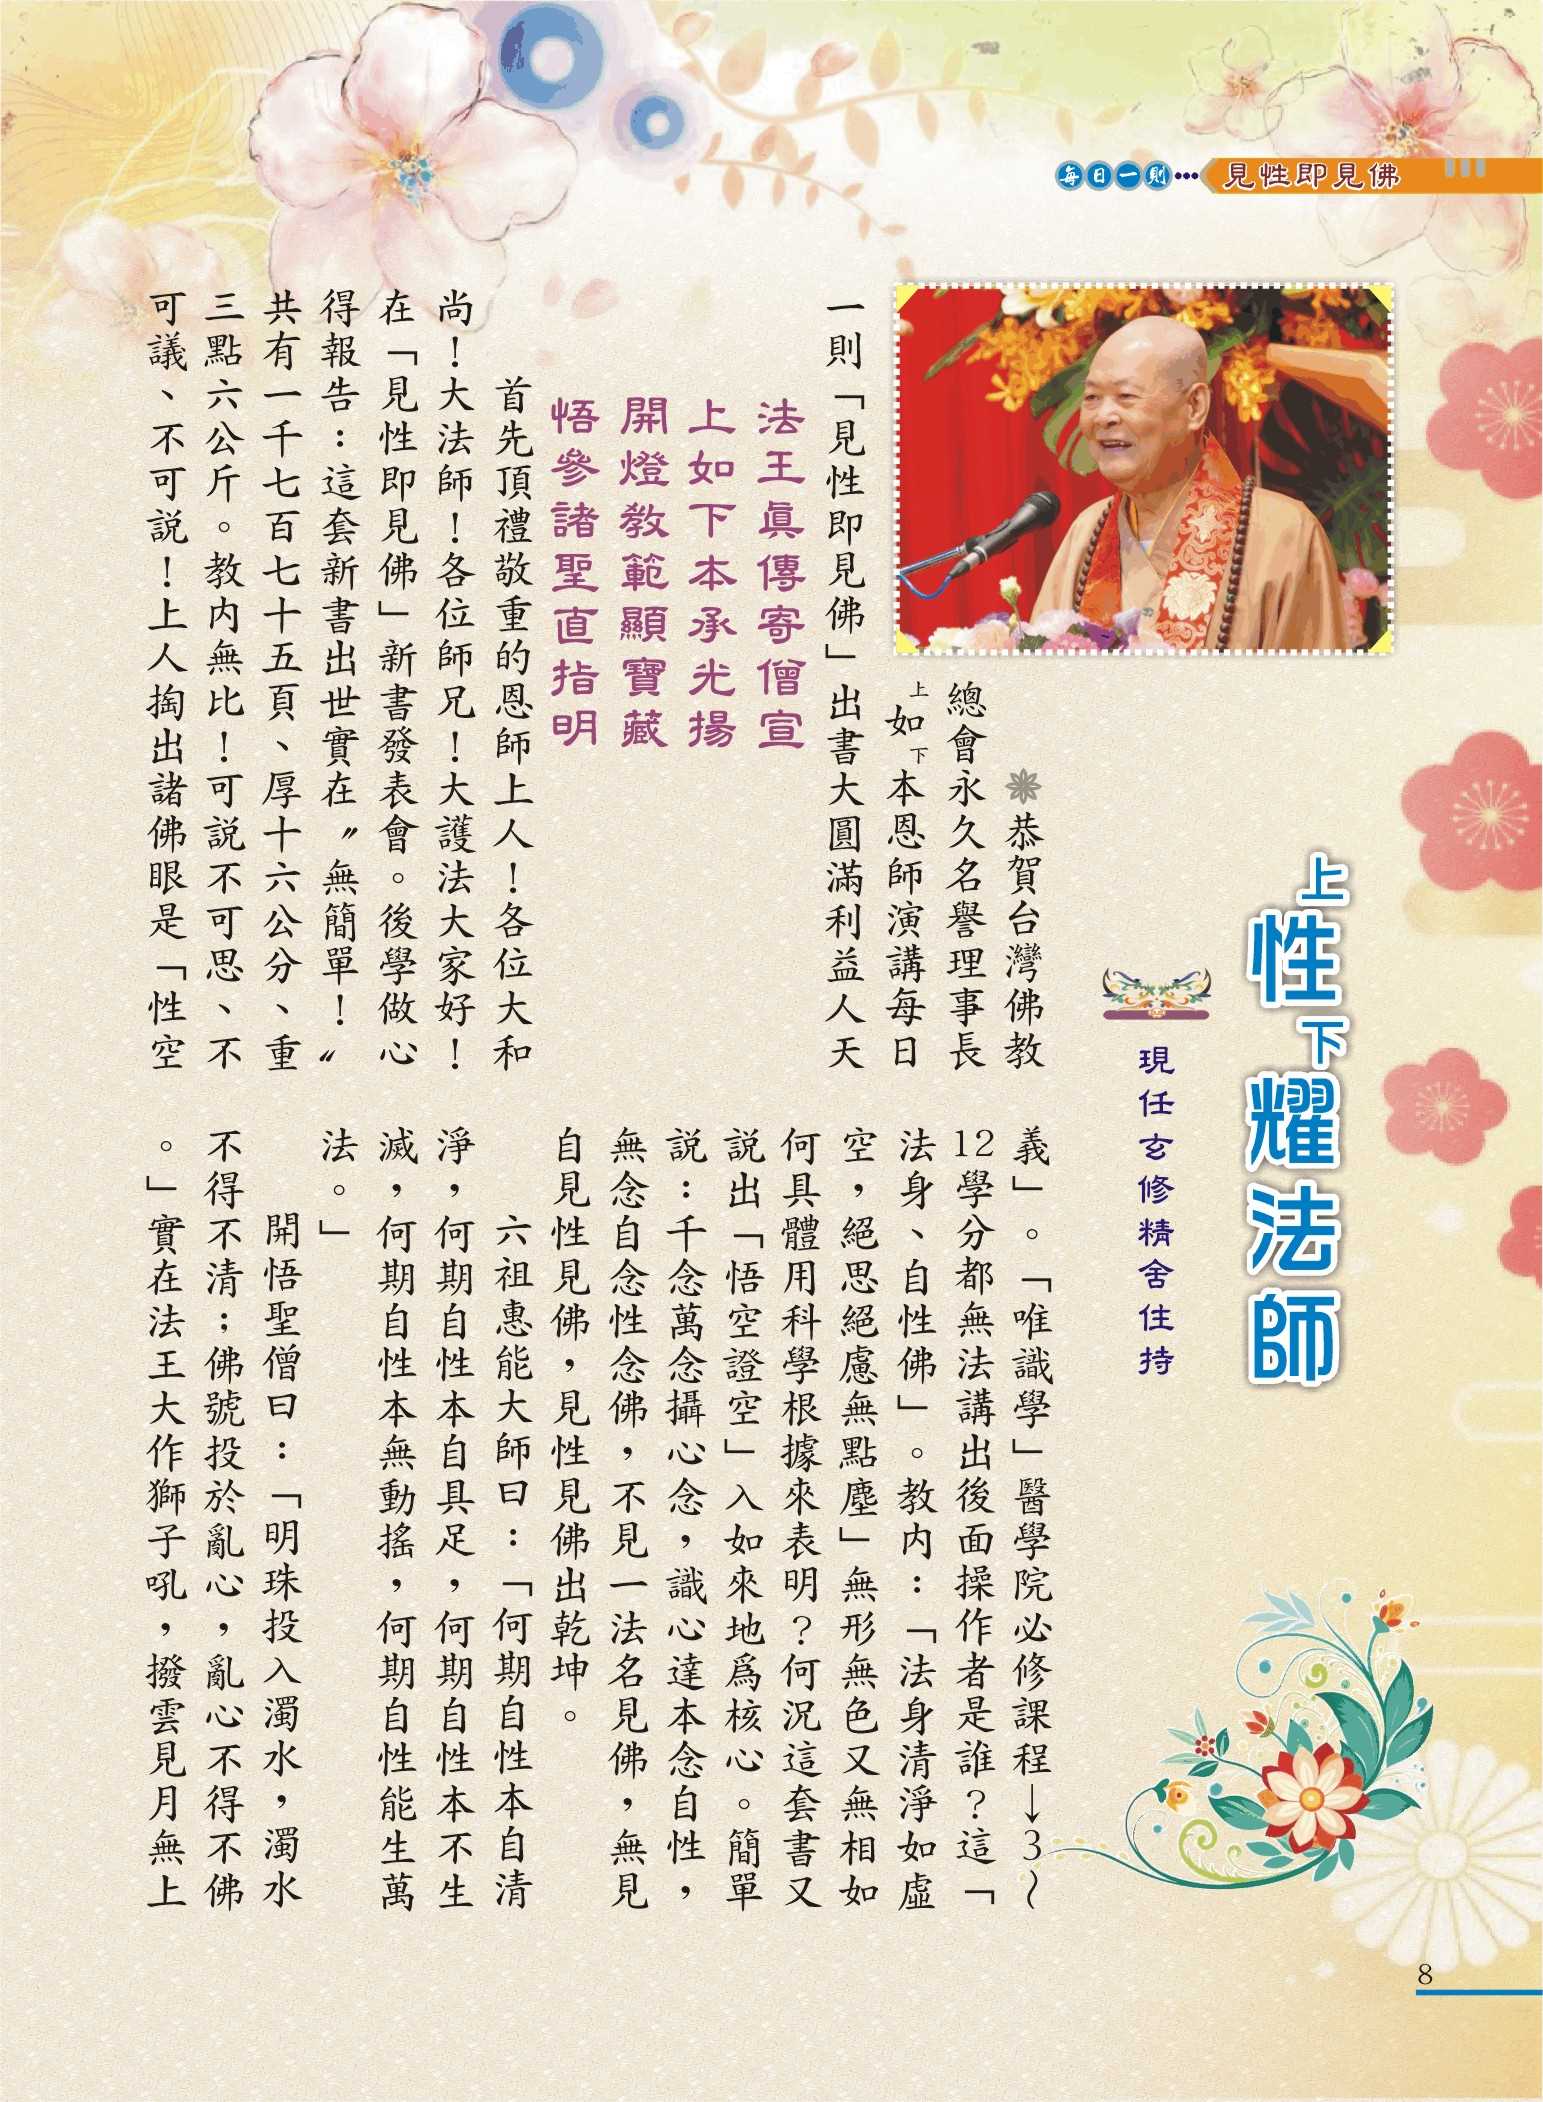 每日一則…見性即見佛
上性下耀法師
現任玄修精舍住持
恭賀台灣佛教
總會永久名譽理事長
上如下本恩師演講每日
一則「見性即見佛」出書大圓滿利益人天
法王眞傳寄僧宣
上如下本承光揚
開燈教範顯寶藏
悟參諸聖直指明
首先頂禮敬重的恩師上人！各位大和
尚！大法師！各位師兄！大護法大家好！
在「見性即見佛」新書發表會。後學做心
得報告：這套新書出世實在〝無簡單！〞
共有一千七百七十五頁、厚十六公分、重
三點六公斤。教內無比！可說不可思、不
可議、不可說！上人掏出諸佛眼是「性空
義」。「唯識學」醫學院必修課程→3～
12學分都無法講出後面操作者是誰？這「
法身、自性佛」。教內：「法身清淨如虛
空，絕思絕慮無點塵」無形無色又無相如
何具體用科學根據來表明？何況這套書又
說出「悟空證空」入如來地爲核心。簡單
說：千念萬念攝心念，識心達本念自性，
無念自念性念佛，不見一法名見佛，無見
自見性見佛，見性見佛出乾坤。
六祖惠能大師曰：「何期自性本自清
淨，何期自性本自具足，何期自性本不生
滅，何期自性本無動搖，何期自性能生萬
法。」
開悟聖僧曰：「明珠投入濁水，濁水
不得不清；佛號投於亂心，亂心不得不佛
。」實在法王大作獅子吼，撥雲見月無上
8